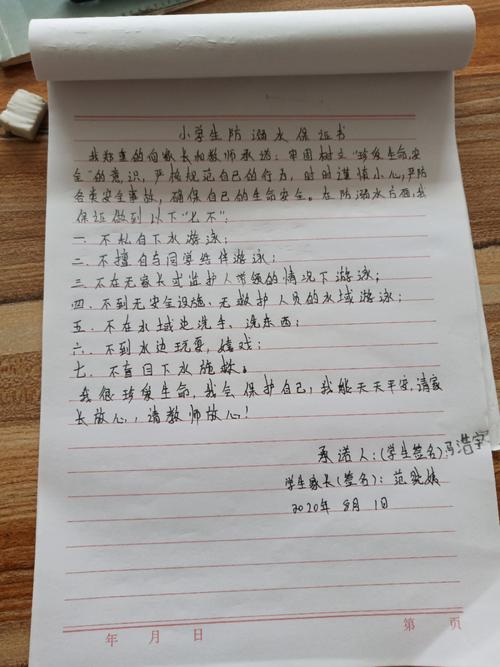 小学生防溺水保证书
我郑重的向家长和教师承诺：牢固树立“珍爱生命，安
全”的意识，严格规范自己的行为，时时谨慎小心，严防
各类安全事故，确保自己的生命安全。在防溺水方面，我
保证做到以下“七不”：
一．不私自下水游泳；
二．不擅自与同学结伴游泳；
三．不在无家长或监护人带领的情况下游泳；
四．不到无安全设施、无救护人员的水域游泳；
五．不在水域边洗手、洗东西；
六．不到水边玩耍、嬉戏；
七．不盲目下水施救。
我很珍爱生命，我会保护自己，我能天天平安，请家
长放心，请教师放心！
承诺人：(学生签名)冯浩宇
学生家长(签名)：范
2020年8月1日
年 月 日 第 页